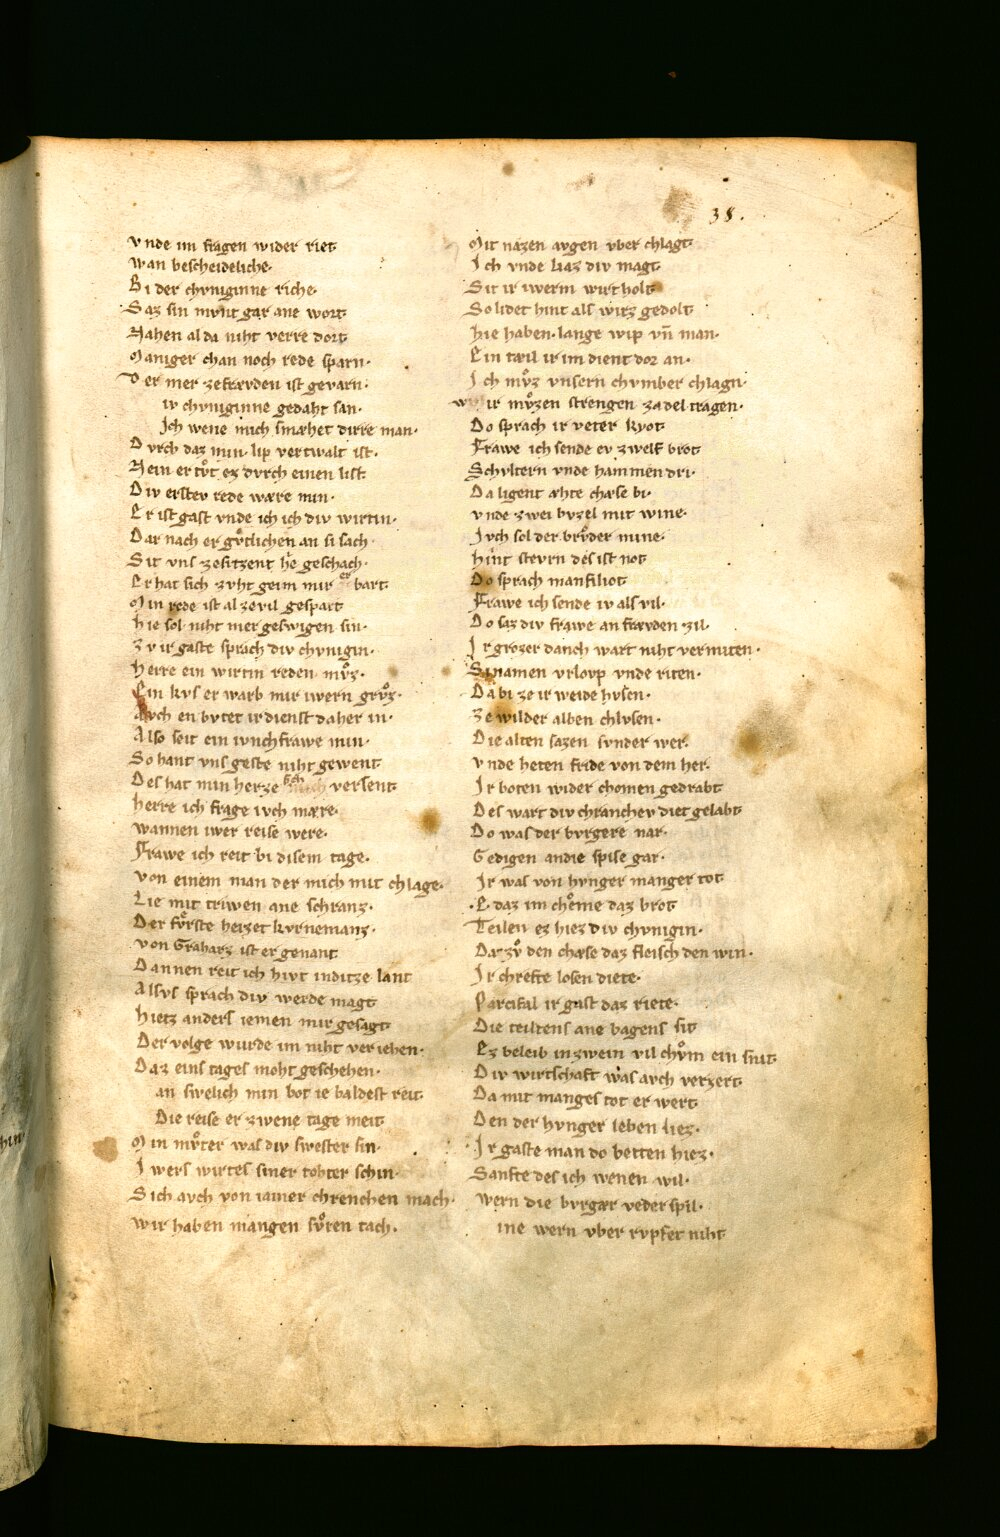 38.
vnde im fragen wider riet
wan bescheideliche·
Bi der chvniginne riche·
Saz sin mvnt gar ane wort
Nahen al da niht verre dort
Maniger chan noch rede sparn·
Der mer zefrævden ist gevarn·
iv chvniginne gedaht san·
Ich wene mich smæhet dirre man·
Dvrch daz min lip vertwalt ist·
Nein er tvͦt ez dvrch einen list
Div erstev rede wære min·
Er ist gast vnde ich ich div wirtin·
Dar nach er gvͤtlichen an si sach·
Sit vns zesitzent hie geschach·
Er hat sich zvht gein mir er bart
Min rede ist al zevil gespart
hie sol niht mer geswigen sin·
Zv ir gaste sprach div chvnigin·
herre ein wirtin reden mvͦz·
Ein kvs er warb mir iwern grvͦz·
Avch en bvtet ir dienst da her in·
Also seit ein ivnchfrawe min·
So hant vns geste niht gewent
Des hat min herze sich versent
herre ich frage ivch mære·
wannen iwer reise were·
Frawe ich reit bi disem tage·
von einem man der mich mit chlage·
Lie mit triwen ane schranz·
Der fvͤrste heizet kvrnemanz·
von Graharz ist er genant
Dannen reit ich hivt inditze lant
Alsvs sprach div werde magt
hietz anders iemen mir gesagt
Der volge wurde im niht veriehen·
Daz eins tages moht geschehen·
an swelich min bot ie baldest reit
Die reise er zwene tage meit
Min mvͦter was div swester sin·
Iwers wirtes siner tohter schin·
Sich avch von iamer chrenchen mach·
wir haben mangen svͦren tach·
Mit nazen avgen vber chlagt
Ich vnde liaz div magt
Sit ir iwerm wirt holt
So lidet hint als wirz gedolt
hie haben lange wip vn̄ man·
Ein tæil ir im dient dor an·
Ich mvͦz vnsern chvmber chlagn·
ir mvͦzen strengen zadel tragen·
Do sprach ir veter kyot
Frawe ich sende ev zwelf brot
Schvltern vnde hammen dri·
Da ligent æhte chæse bi·
vnde zwei bvzel mit wine·
Ivch sol der brvͦder mine·
hint stevrn des ist not
Do sprach manfiliot
Frawe ich sende iv als vil·
Do saz div frawe an frævden zil·
Ir grozer danch wart niht vermiten·
Si namen vrlovp vnde riten·
Da bi ze ir weide hvsen·
Ze wilder alben chlvsen·
Die alten sazen svnder wer·
vnde heten fride von dem her·
Ir boten wider chomen gedrabt
Des wart div chranchev diet gelabt
Do was der bvrgere nar·
Gedigen andie spise gar·
Ir was von hvnger manger tot
E daz im chôme daz brot
Teilen ez hiez div chvnigin·
Dar zvͦ den chæse daz fleisch den win·
Ir chrefte losen diete·
Parcifal ir gast daz riete·
Die teiltens ane bagens sit
Ez beleib in zwein vil chvͦm ein snit
Div wirtschaft was avch verzert
Da mit manges tot er wert
Den der hvnger leben liez·
Ir gaste man do betten hiez·
Sanfte des ich wenen wil·
wern die bvrgær vederspil·
ine wern vber rvpfet niht